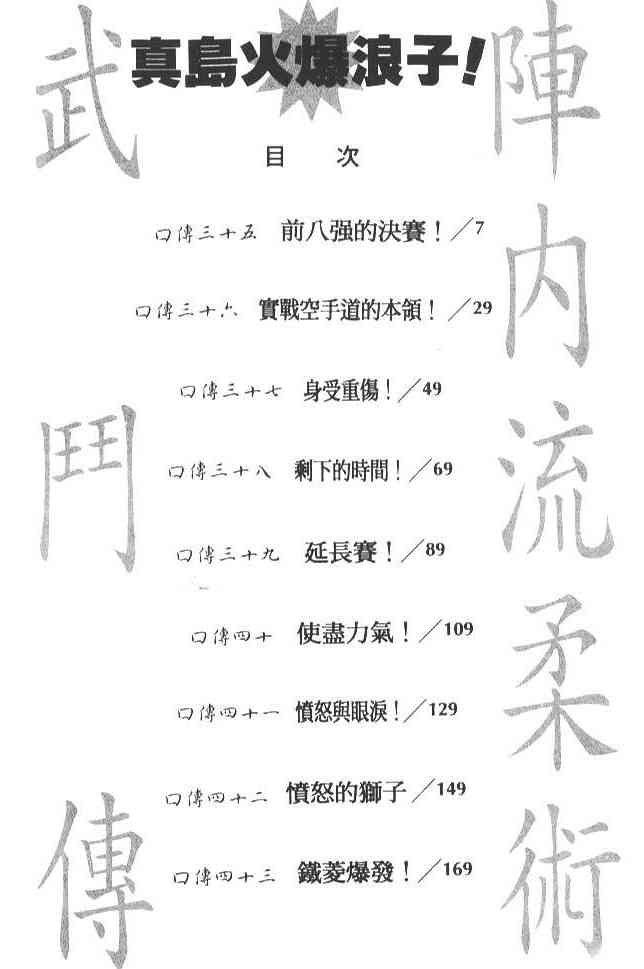 真島火爆浪子!
目 次
口傳三十五 前八强的決賽!/7
口傳三十六 實戰空手道的本領!/29
口傳三十七 身受重傷!/49
口傳三十八 剩下的時間!/69
口傳三十九 延長賽!/89
口傳四十 使盡力氣!/109
口傳四十一 憤怒與眼淚!/129
口傳四十二 憤怒的獅子/149
口傳四十三 鐵菱爆發!/169
陣内流柔術
武鬥傳